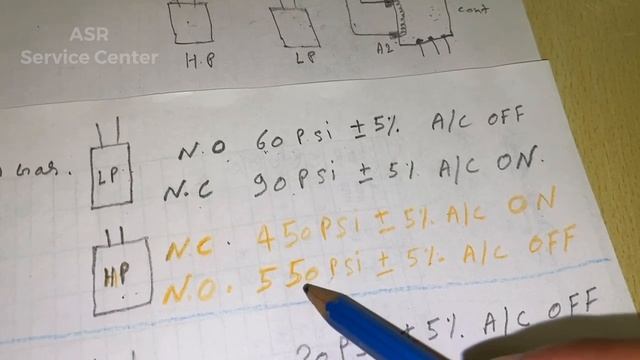 ASR
Service Center
H.P
LP
A2
cont
Gas.
LP
N.O 60 Psi ± 5% A/C OFF
N.C 90 PSi ± 5% A/C ON.
HP
N.C. 450 PSi ± 5% A/C ON
N.O. 550 Psi ± 5% A/C OFF
20 PSi ± 5% A/C OFF